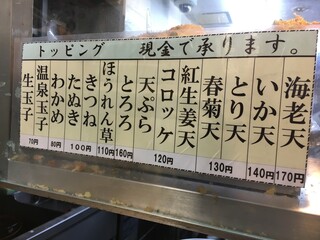 トッピング 現金で承ります。
海老天
170円
いか天
140円
とり天
春菊天
130円
紅生姜天
コロッケ
120円
天ぷら
とろろ
160円
ほうれん草
110円
きつね
たぬき
100円
わかめ
80円
温泉玉子
生玉子
70円